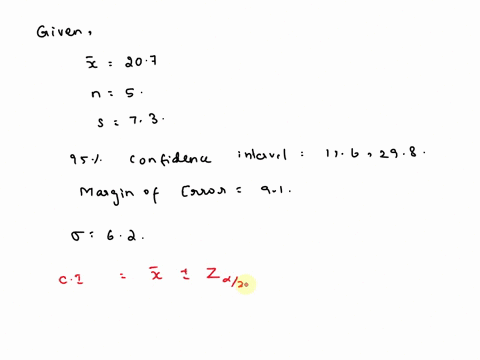 Given,
x̄ = 20.7
n = 5.
s = 7.3.
95% Confidence interval = 11.6, 29.8.
Margin of Error = 9.1.
σ = 6.2.
C.I = x̄ ± Z α/2